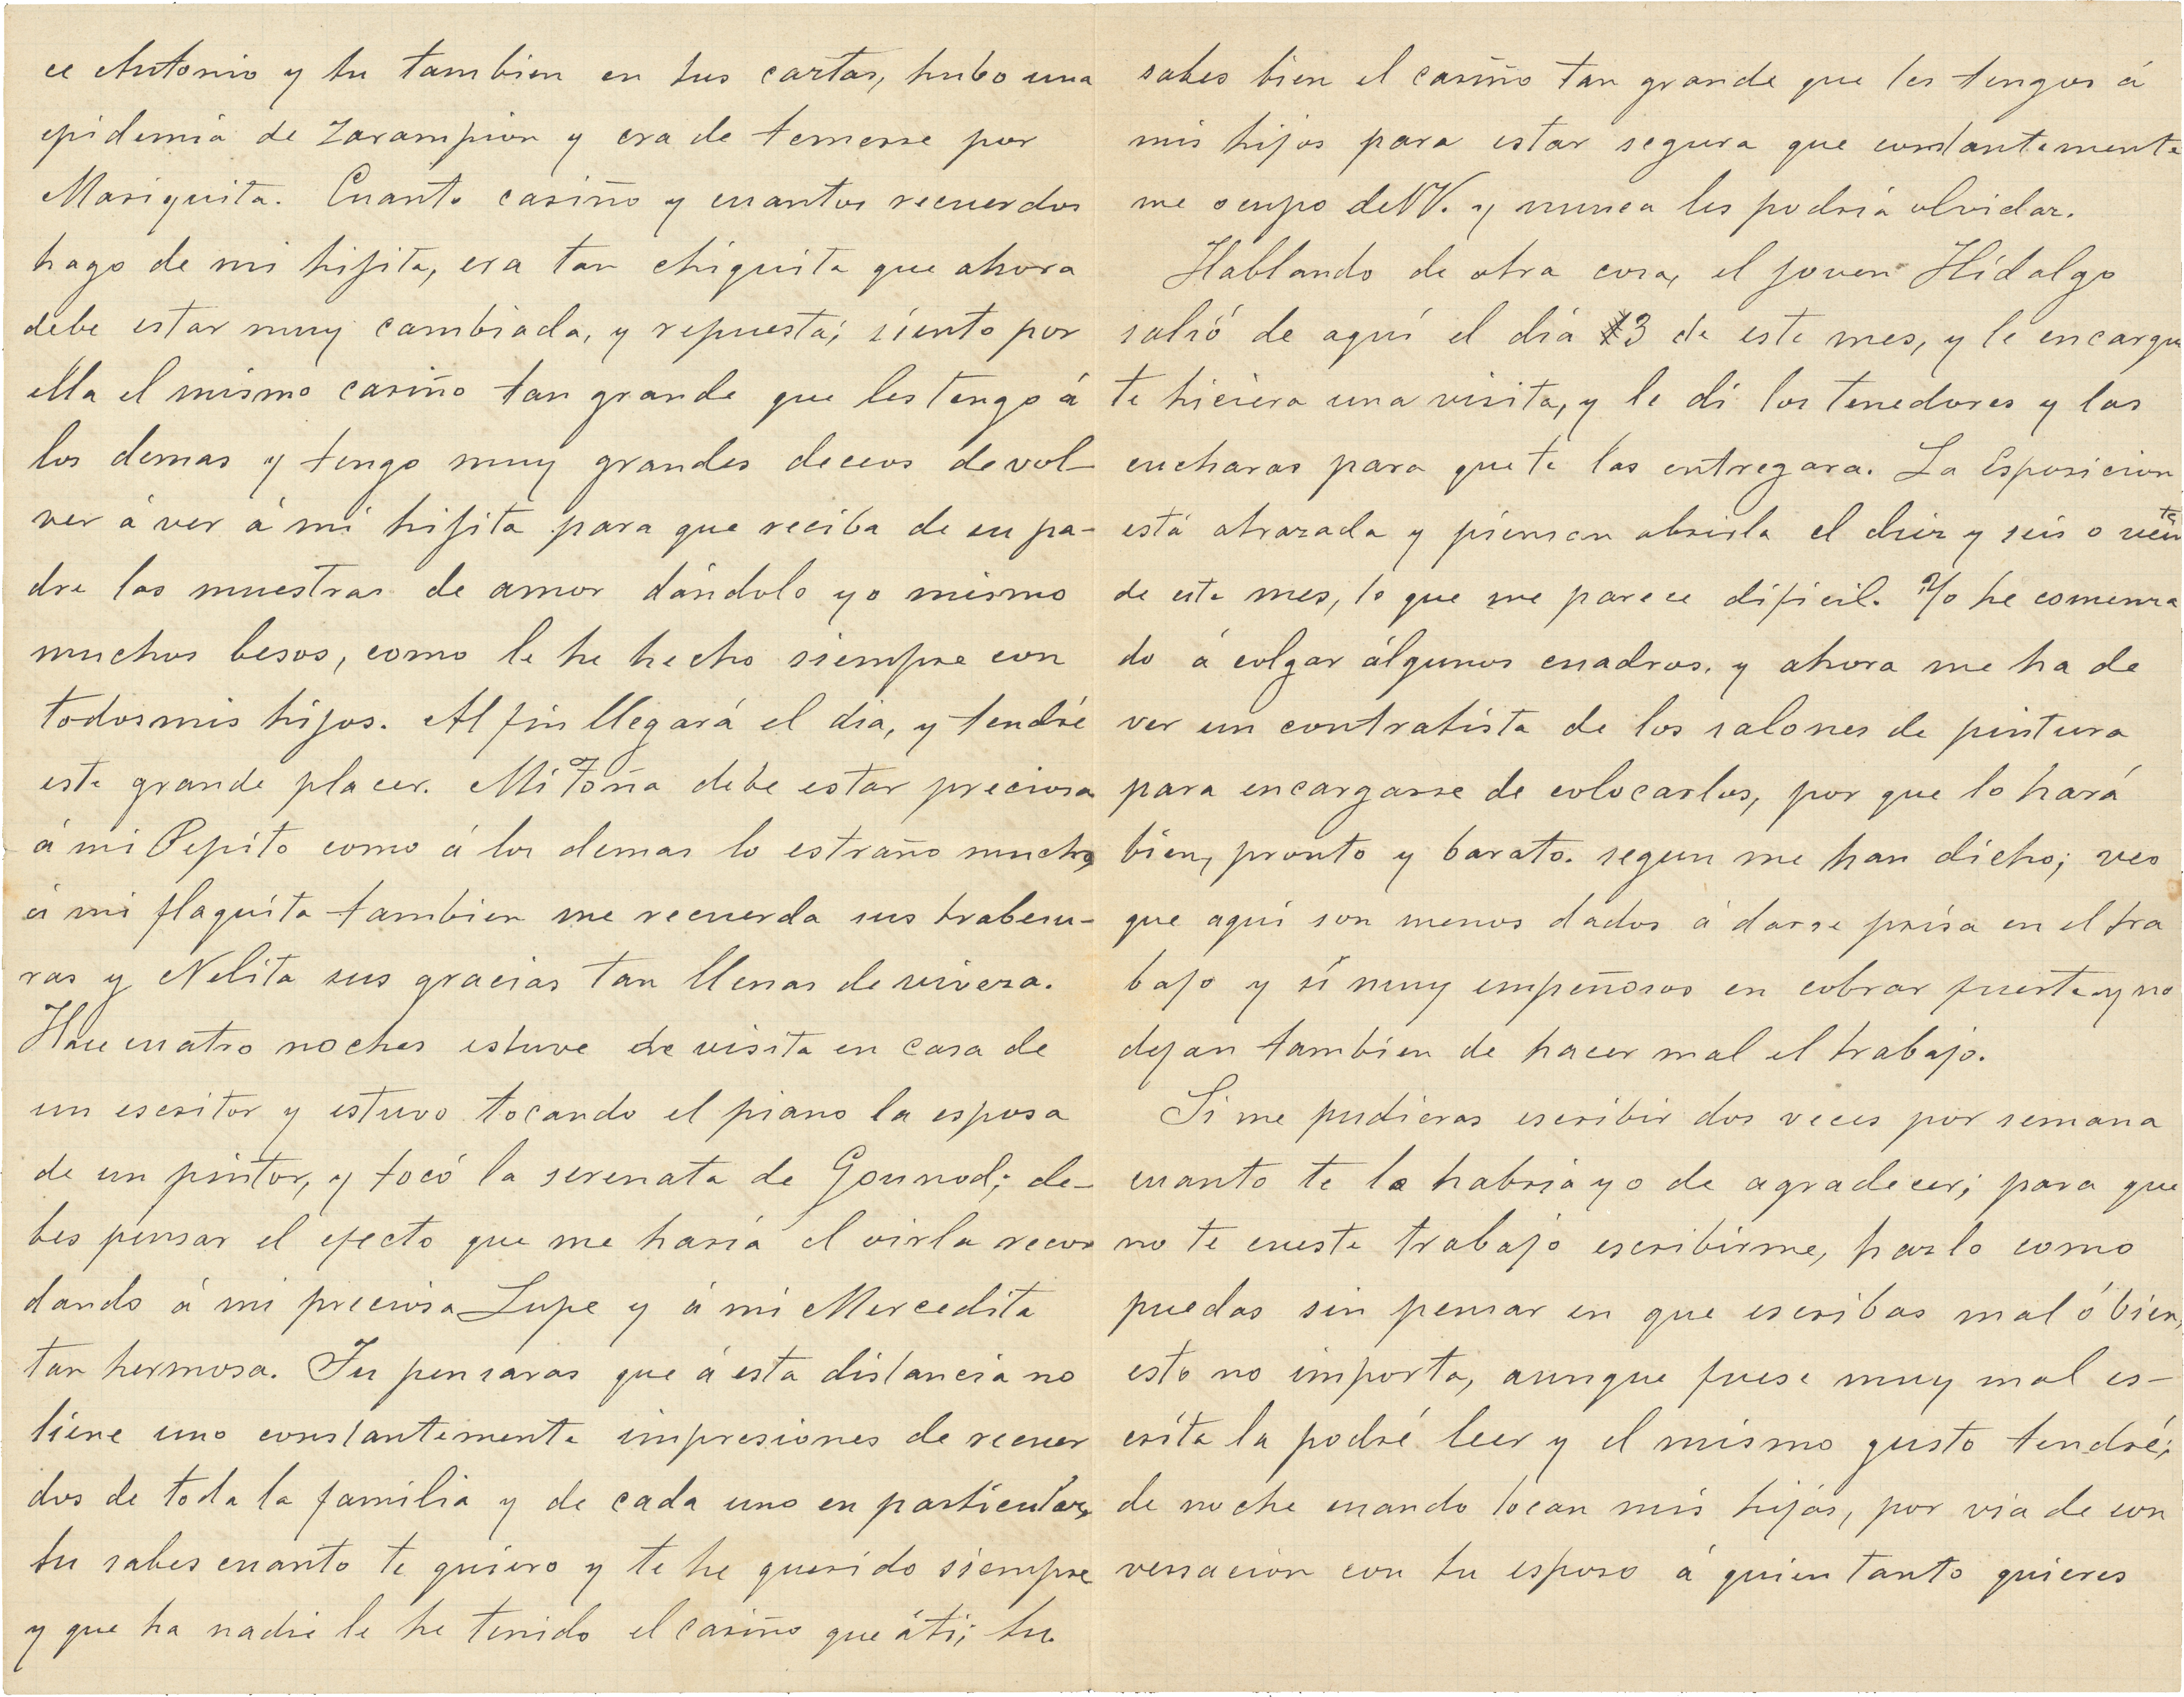 ce Antonio y tu tambien en tus cartas, hubo una
epidemia de Zarampion y era de temerse por
Mariquita. Cuanto cariño y cuantos recuerdos
hago de mi hijita, era tan chiquita que ahora
debe estar muy cambiada, y repuesta; siento por
ella el mismo cariño tan grande que les tengo á
los demas y tengo muy grandes deceos de vol-
ver á ver á mi hijita para que reciba de su pa-
dre las muestras de amor dándole yo mismo
muchos besos, como le he hecho siempre con
todos mis hijos. Al fin llegará el dia, y tendré
este grande placer. Mi Toña debe estar preciosa
á mi Pepito como á los demas lo estraño mucho,
á mi flaquita tambien me recuerda sus trabesu-
ras y Nelita sus gracias tan llenas de viveza.
Hace cuatro noches estuve de visita en casa de
un escritor y estuvo tocando el piano la esposa
de un pintor, y tocó la serenata de Gounod; de-
bes pensar el efecto que me haria el oirla recor
dando á mi preciosa Lupe y á mi Mercedita
tan hermosa. Tu pensaras que á esta distancia no
tiene uno constantemente impresiones de recuer
dos de toda la familia y de cada uno en particular,
tu sabes cuanto te quiero y te he querido siempre
y que ha nadie le he tenido el cariño que á ti; tu
sabes bien el cariño tan grande que les tengos á
mis hijos para estar segura que constantemente
me ocupo de VV. y nunca les podria olvidar.
Hablando de otra cosa, el joven Hidalgo
salió de aquí el dia 3 de este mes, y le encargue
te hiciera una visita, y le di los tenedores y las
cucharas para que te las entregara. La Esposicion
está atrazada y piensan abrirla el diez y seis o vein te
de este mes, lo que me parece dificil. Yo he comenza
do á colgar álgunos cuadros, y ahora me ha de
ver un contratista de los salones de pintura
para encargarse de colocarlos, por que lo hará
bien, pronto y barato. segun me han dicho; veo
que aqui son menos dados á darse prisa en el tra
bajo y sí muy empeñosos en cobrar fuerte y no
dejan tambien de hacer mal el trabajo.
Si me pudieras escribir dos veces por semana
cuanto te lo habria yo de agradecer; para que
no te cueste trabajo escribirme, hazlo como
puedas sin pensar en que escribas mal ó bien,
esto no importa, aunque fuese muy mal es-
crita la podré leer y el mismo gusto tendré;
de noche cuando tocan mis hijas, por via de con
versacion con tu esposo á quien tanto quieres